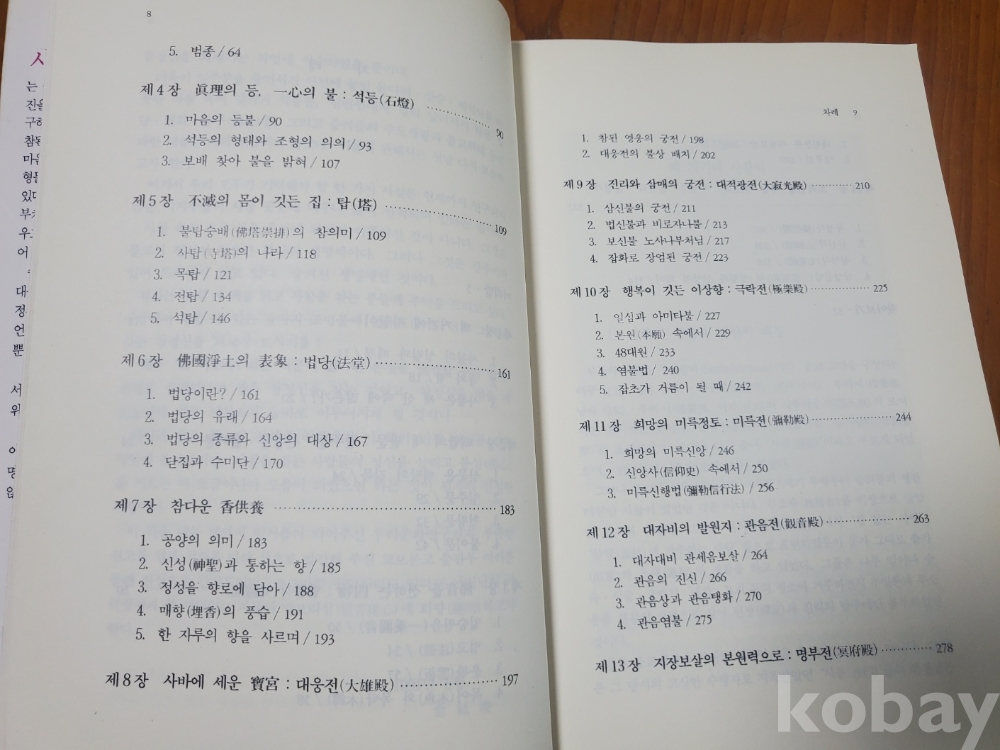 8
5. 범종 / 64
제4장 眞理의 등, 一心의 불 : 석등(石燈) 90
1. 마음의 등불 / 90
2. 석등의 형태와 조형의 의의 / 93
3. 보배 찾아 불을 밝혀 / 107
제5장 不滅의 몸이 깃든 집 : 탑(塔) 109
1. 불탑숭배(佛塔崇排)의 참의미 / 109
2. 사탑(寺塔)의 나라 / 118
3. 목탑 / 121
4. 전탑 / 134
5. 석탑 / 146
제6장 佛國淨土의 表象 : 법당(法堂) 161
1. 법당이란? / 161
2. 법당의 유래 / 164
3. 법당의 종류와 신앙의 대상 / 167
4. 닫집과 수미단 / 170
제7장 참다운 香供養 183
1. 공양의 의미 / 183
2. 신성(神聖)과 통하는 향 / 185
3. 정성을 향로에 담아 / 188
4. 매향(埋香)의 풍습 / 191
5. 한 자루의 향을 사르며 / 193
제8장 사바에 세운 寶宮 : 대웅전(大雄殿) 197
차례 9
1. 참된 영웅의 궁전 / 198
2. 대웅전의 불상 배치 / 202
제9장 진리와 삼매의 궁전 : 대적광전(大寂光殿) 210
1. 삼신불의 궁전 / 211
2. 법신불과 비로자나불 / 213
3. 보신불 노사나부처님 / 217
4. 잡화로 장엄된 궁전 / 223
제10장 행복이 깃든 이상향 : 극락전(極樂殿) 225
1. 일심과 아미타불 / 227
2. 본원(本願) 속에서 / 229
3. 48대원 / 233
4. 염불법 / 240
5. 잡초가 거름이 될 때 / 242
제11장 희망의 미륵정토 : 미륵전(彌勒殿) 244
1. 희망의 미륵신앙 / 246
2. 신앙사(信仰史) 속에서 / 250
3. 미륵신행법(彌勒信行法) / 256
제12장 대자비의 발원지 : 관음전(觀音殿) 263
1. 대자대비 관세음보살 / 264
2. 관음의 진신 / 266
3. 관음상과 관음탱화 / 270
4. 관음염불 / 275
제13장 지장보살의 본원력으로 : 명부전(冥府殿) 278
kobay